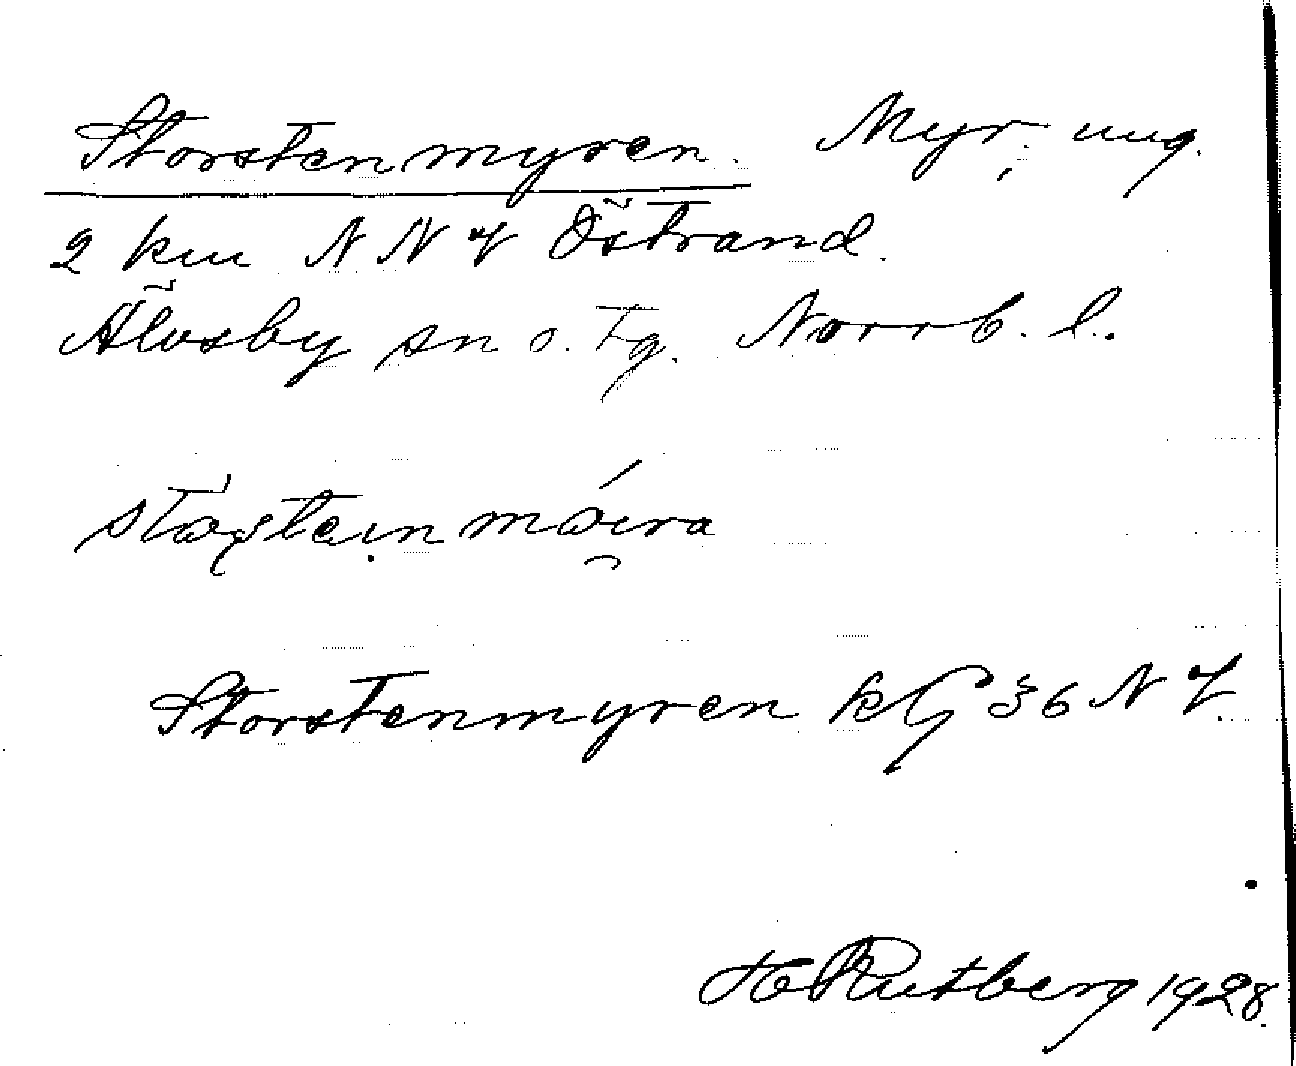 Storstenmyren. Myr, ung.
2 km NNV Östrand.
Älvsby sn o. tg. Norrb. l.
Storstenmyren kG 36 NV.
H Rutberg 1928.